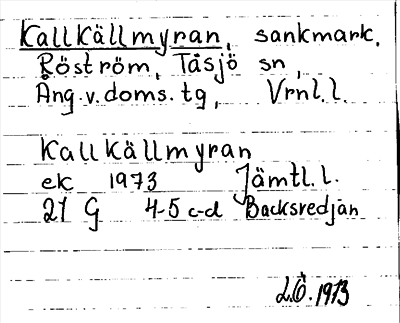 Kallkällmyran, sankmark,
Röström, Tåsjö sn,
Ång.v.doms.tg, Vrnl.l.
Kallkällmyran
ek 1973 Jämtl.l.
21 G 4-5 c-d Backsredjan
L.Ö. 1973